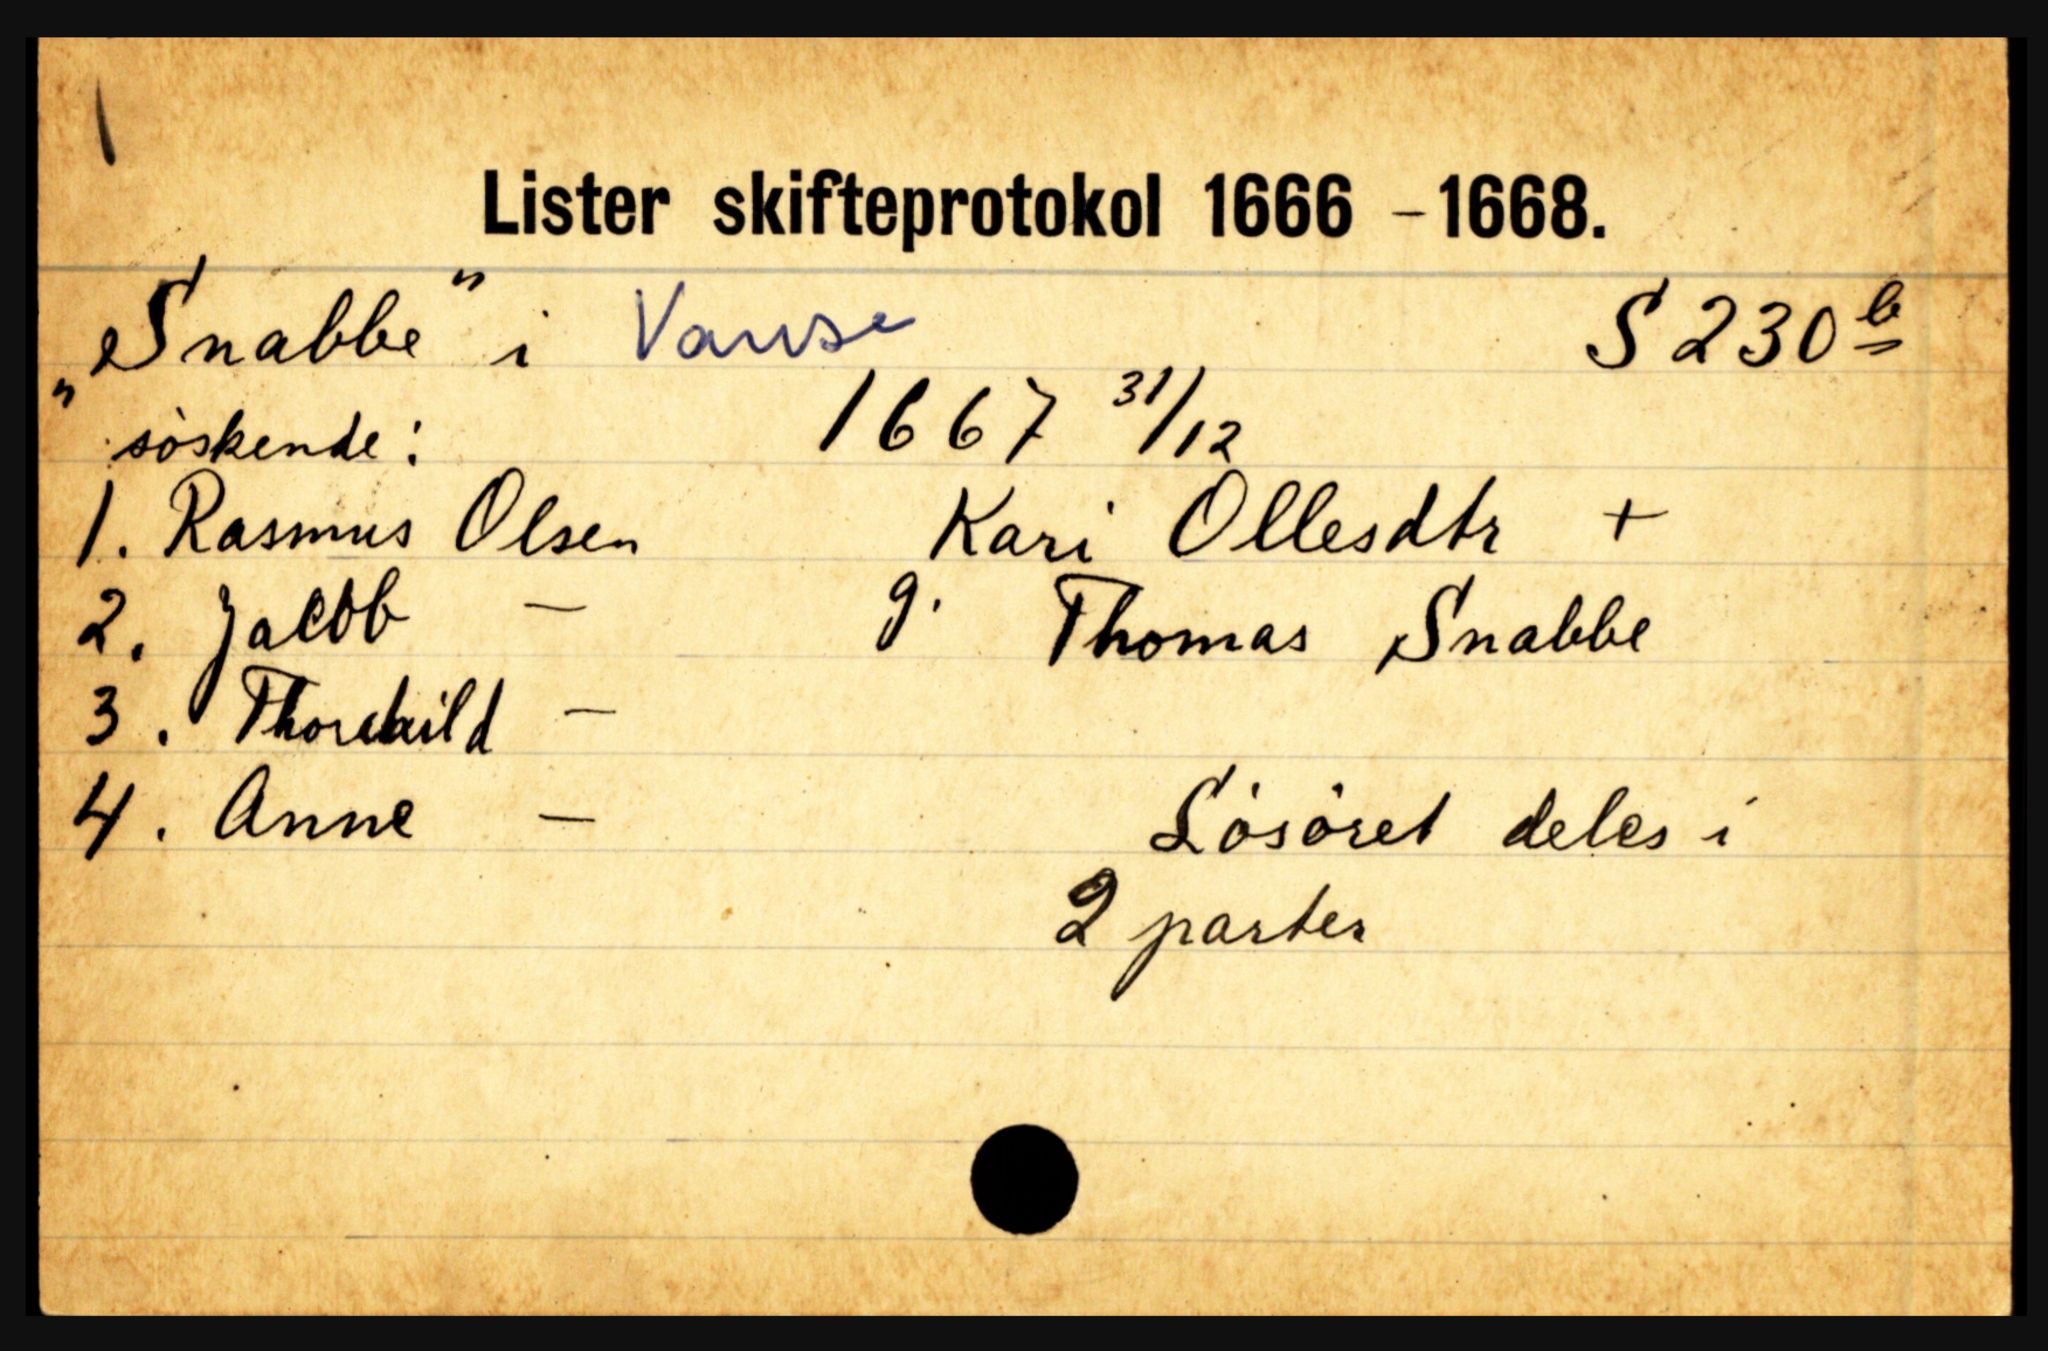 Lister skifteprotokol 1666 - 1668.
„Snabbe" i Vanse S 230 b
söskende: 1667 31/12
1. Rasmus Olsen Kari Ollesdtr +
2. Jacob — g. Thomas Snabbe
3. Thorchild —
4. Anne — Lösöret deles i
2 parter